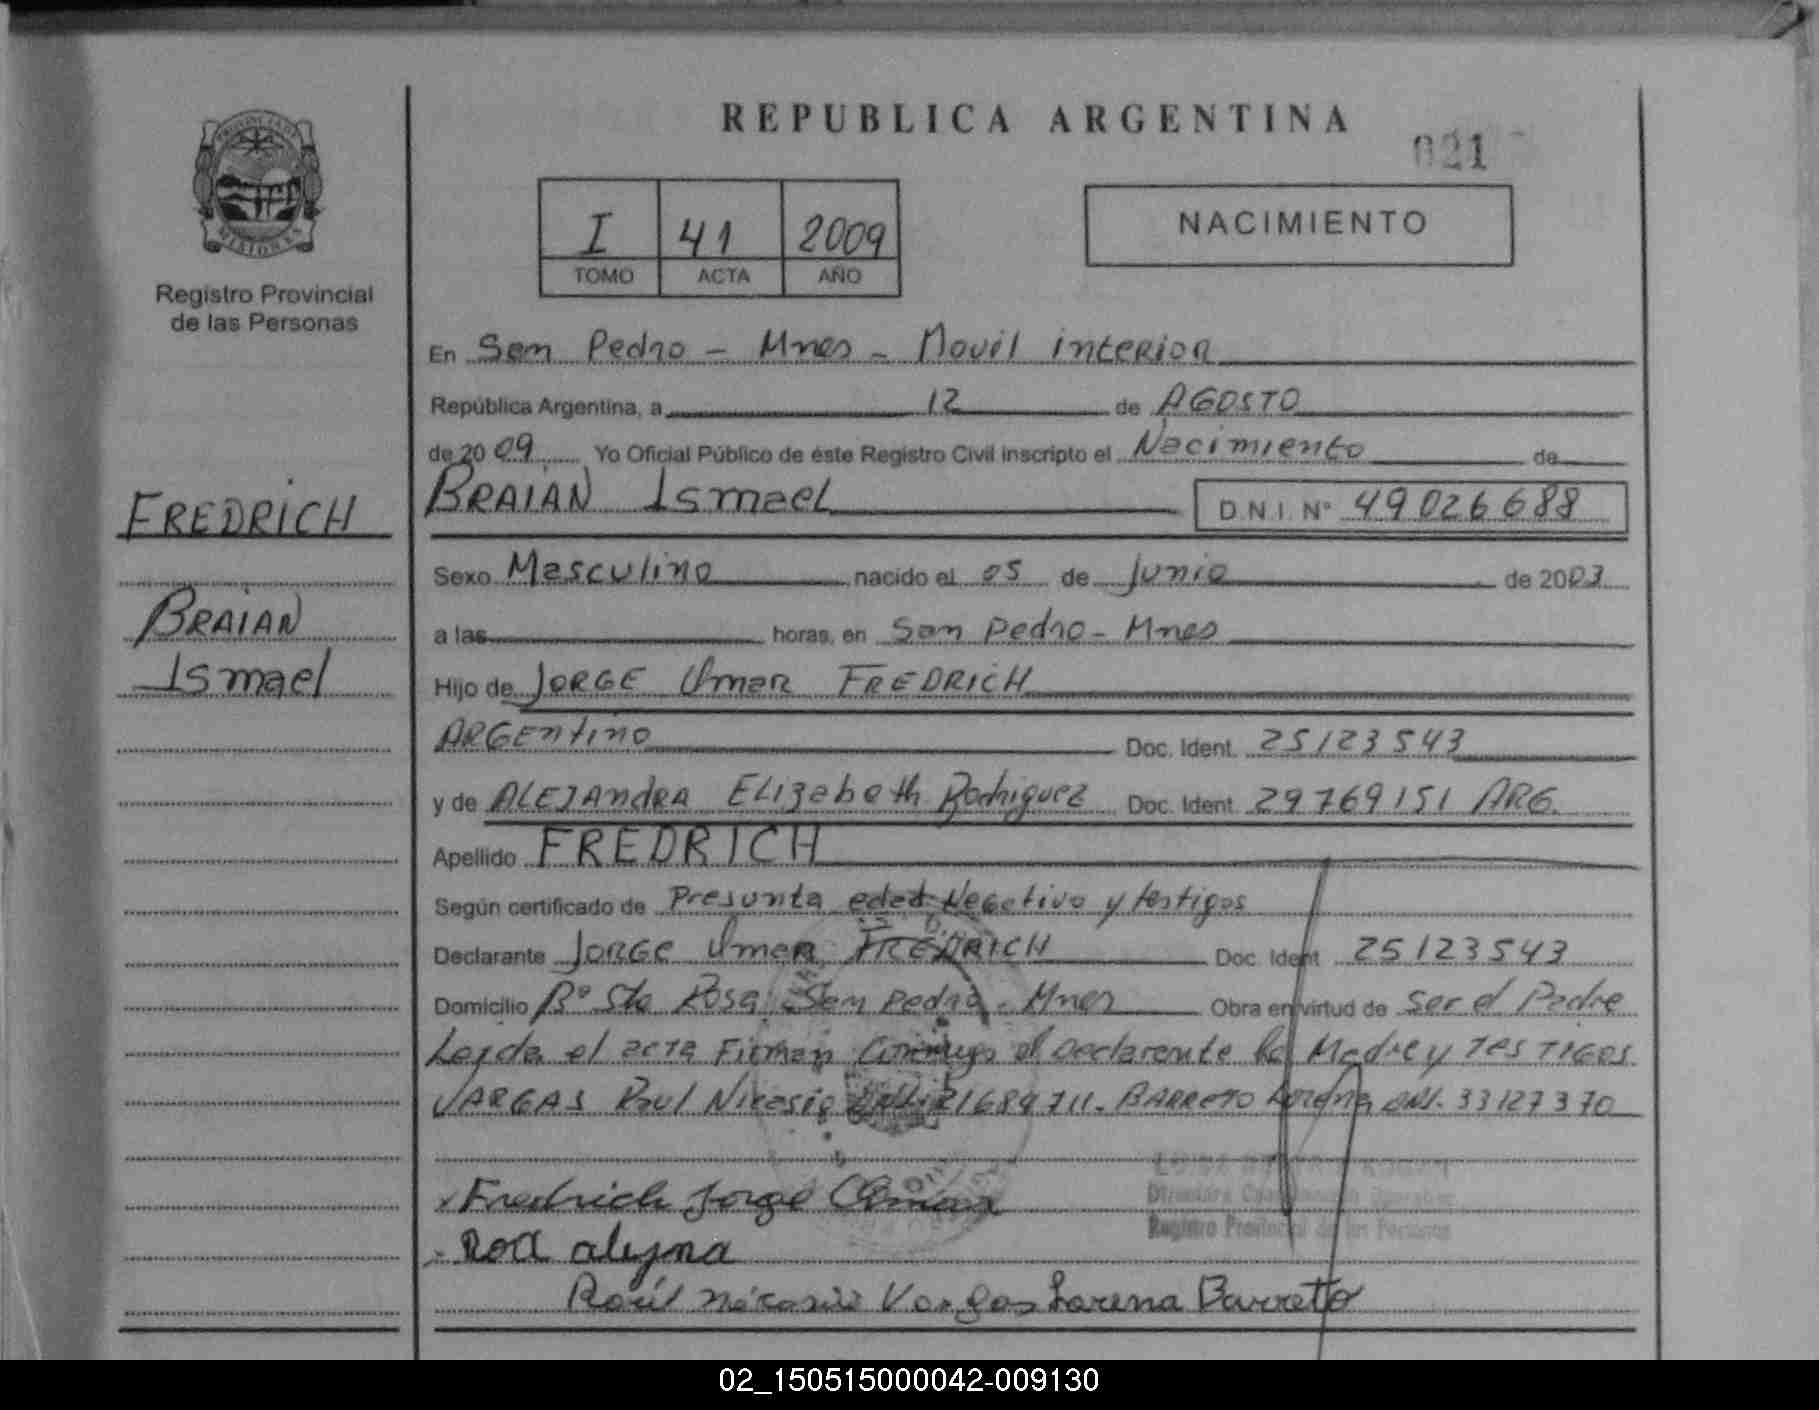 PROVINCIA DE
MISIONES
Registro Provincial
de las Personas
FREDRICH
BRAIAN
Ismael
REPUBLICA ARGENTINA
021
I 41 2009
TOMO ACTA AÑO
NACIMIENTO
En San Pedro - Mnes - Movil interior
República Argentina, a 12 de AGOSTO
de 2009 Yo Oficial Público de éste Registro Civil inscripto el Nacimiento de
BRAIAN Ismael D.N.I. N° 49026688
Sexo Masculino nacido el 05 de Junio de 2003
a las horas, en San Pedro - Mnes
Hijo de JORGE Omar FREDRICH
ARGEntino Doc. Ident. 25123543
y de ALEJAndRA ELizabeth Rodriguez Doc. Ident. 29769151 ARG.
Apellido FREDRICH
Según certificado de Presunta edad Negativo y testigos
Declarante JORGE Omar FREDRICH Doc. Ident 25123543
Domicilio B° Sta Rosa San Pedro - Mnes Obra en virtud de Ser el Padre
Leida el acta Firman Conmigo el Declarante la Madre y TesTigos
VARGAS Raul Nicasio 21689711 - BARRETO Lorena DNI. 33127370
Fredrich Jorge Omar
Rod
Raúl Vargas Lorena Barretto
Registro Provincial de las Personas
02_150515000042-009130